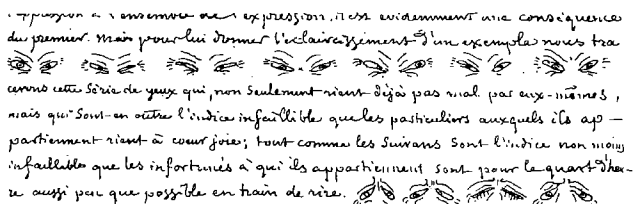 l'expression, il est evidemment une conséquence
du premier. Mais pour lui donner l'eclaircissement d'un exemple nous tra
cerons cette Série de yeux qui, non Seulement rient déjà pas mal par eux-mêmes,
mais qui Sont en outre l'indice infaillible que les particuliers auxquels ils ap-
partiennent rient à coeur joie; tout comme les Suivans Sont l'indice non moins
infaillible que les infortunés à qui ils appartiennent sont pour le quart d'heu-
re aussi peu que possible en train de rire.